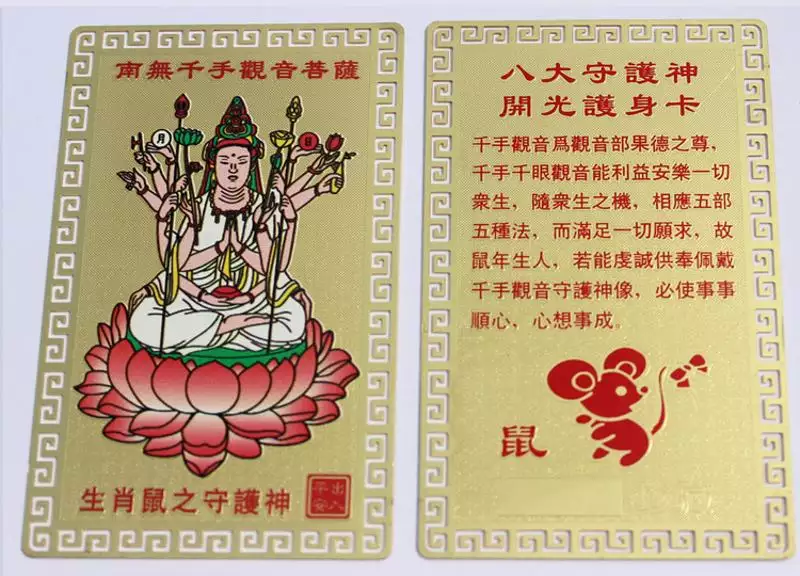 南無千手觀音菩薩
月
日
生肖鼠之守護神
出入
平安
八大守護神
開光護身卡
千手觀音爲觀音部果德之尊，
千手千眼觀音能利益安樂一切
衆生，隨衆生之機，相應五部
五種法，而滿足一切願求，故
鼠年生人，若能虔誠供奉佩戴
千手觀音守護神像，必使事事
順心，心想事成。
鼠